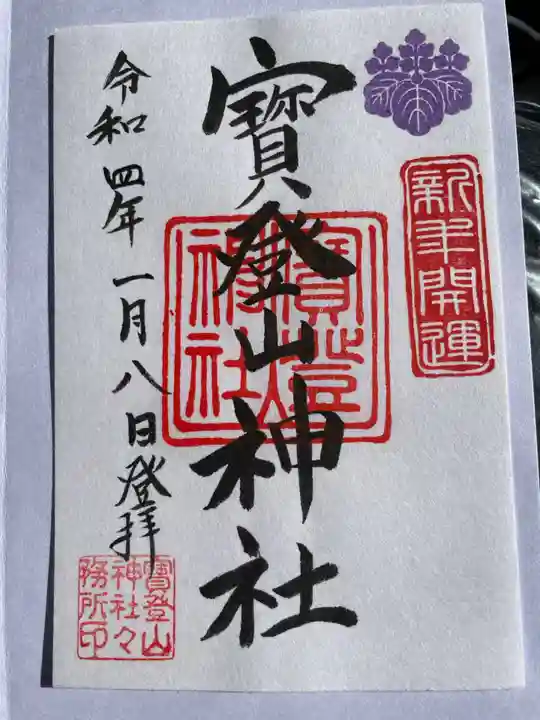 新年開運
寳登山神社
寳登山神社
令和四年一月八日登拝
寳登山
神社々
務所印